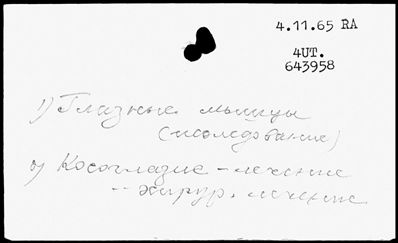 4.11.65 RA
4UT.
643958
1) Глазные мышцы
(исследование)
2) Косоглазие - лечение
-- хирур. лечение